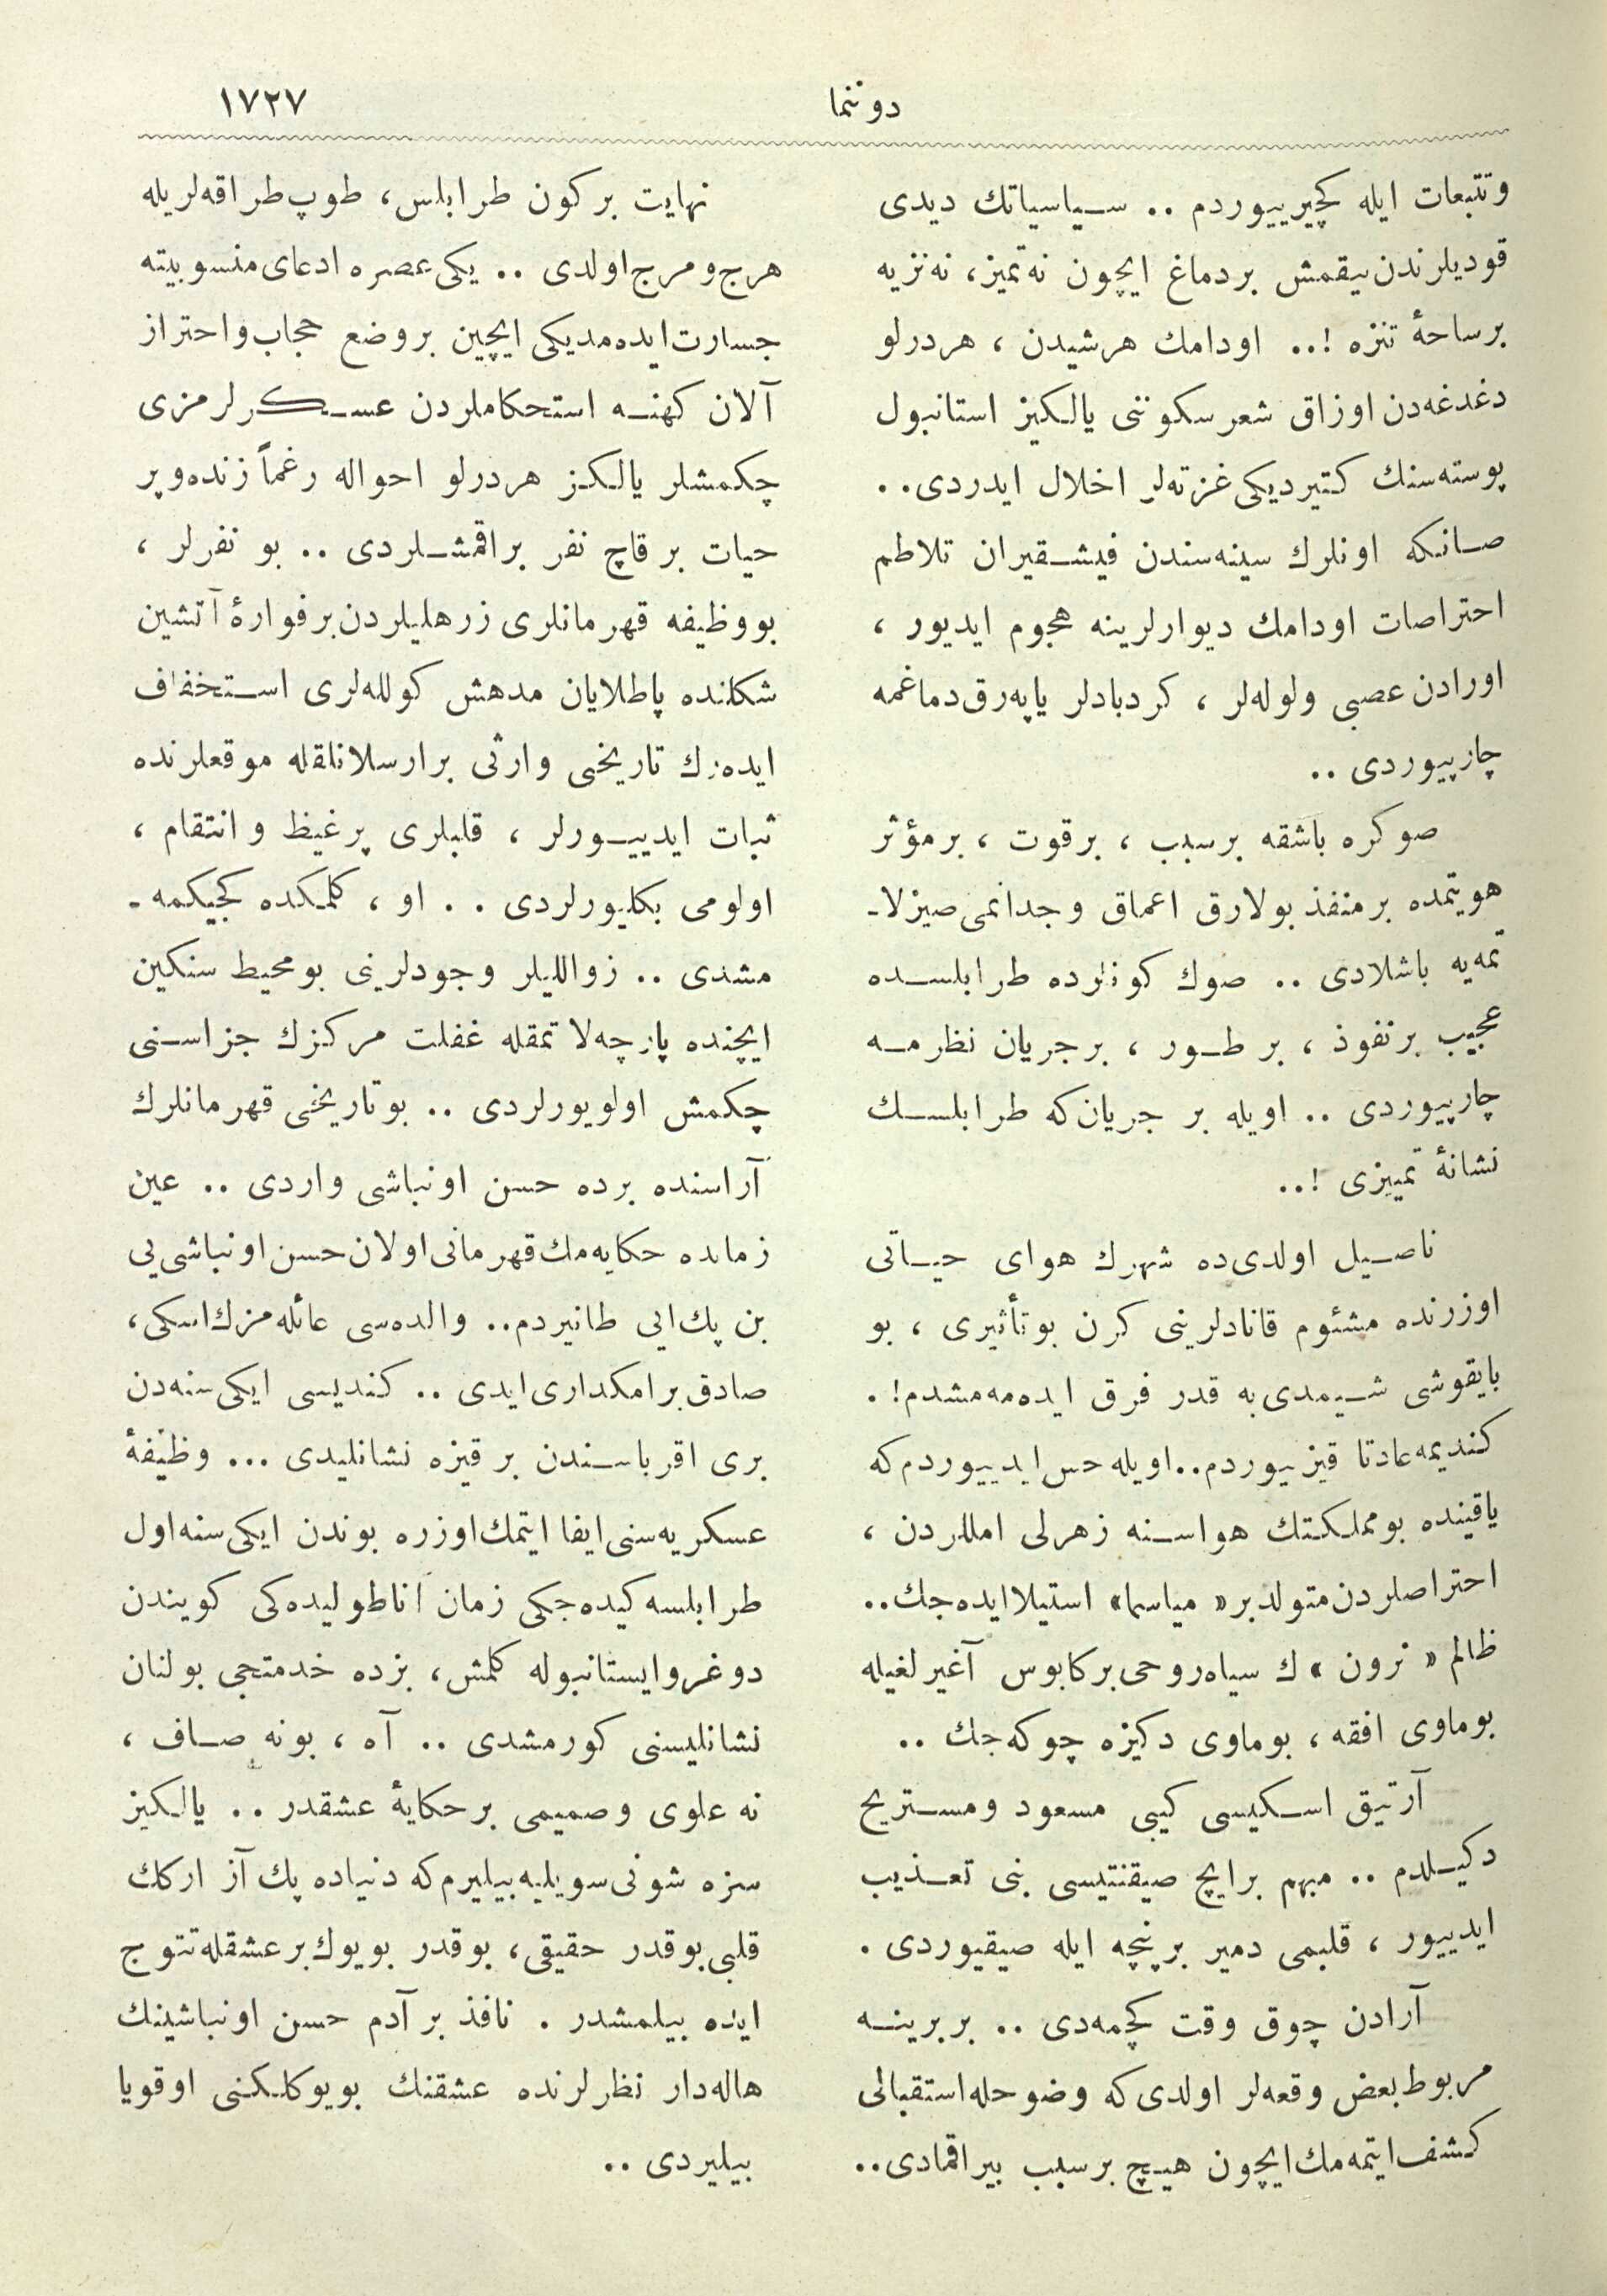 دوننما
١٧٢٧
وتتبعات ايله كچيرييوردم .. سياسياتك ديدى
قوديلرندن بيقمش بردماغ ايچون نه تميز، نه نزيه
برساحهٔ تنزه !.. اودامك هرشيدن ، هردرلو
دغدغه‌دن اوزاق شعر سكوتنى يالكيز استانبول
پوسته‌سنك كتيرديكى غزته‌لر اخلال ايدردى..
صانكه اونلرك سينه‌سندن فيشقيران تلاطم
احتراصات اودامك ديوارلرينه هجوم ايديور ،
اورادن عصبى ولوله‌لر ، كردبادلر ياپه‌رق دماغمه
چارپيوردى ..
صوكره باشقه برسبب ، برقوت ، برمؤثر
هويتمده برمنفذ بولارق اعماق وجدانمى صيزلا-
تمه‌يه باشلادى .. صوك كونلرده طرابلسده
عجيب برنفوذ ، بر طور ، برجريان نظرمه
چارپيوردى .. اويله بر جريان كه طرابلسك
نشانهٔ تمييزى !..
ناصيل اولدى ده شهرك هواى حياتى
اوزرنده مشئوم قانادلرينى كرن بوتأثيرى ، بو
بايقوشى شيمدى‌يه قدر فرق ايده‌مه‌مشدم! .
كنديمه عادتا قيزييوردم.. اويله حس ايدييوردم كه
ياقينده بومملكتك هواسنه زهرلى امللردن ،
احتراصلردن متولد بر « مياسما » استيلا ايده‌جك..
ظالم « نرون » ك سياه روحى بركابوس آغيرلغيله
بوماوى افقه ، بوماوى دكيزه چوكه‌جك ..
آرتيق اسكيسى كيبى مسعود ومستريح
دكيلدم .. مبهم برايچ صيقنتيسى بنى تعذيب
ايدييور ، قلبمى دمير برپنچه ايله صيقيوردى .
آرادن چوق وقت كچمه‌دى .. بربرينه
مربوط بعض وقعه‌لر اولدى كه وضوحله استقبالى
كشف ايتمه‌مك ايچون هيچ برسبب بيراقمادى..
نهايت بركون طرابلس، طوپ طراقه‌لريله
هرج ومرج اولدى .. يكى عصره ادعاى منسوبيته
جسارت ايده‌مديكى ايچين بروضع حجاب واحتراز
آلان كهنه استحكاملردن عسكرلرمزى
چكمشلر يالكز هردرلو احواله رغماً زنده وپر
حيات بر قاچ نفر براقمشلردى .. بو نفرلر ،
بووظيفه قهرمانلرى زرهليلردن برفوارهٔ آتشين
شكلنده پاطلايان مدهش كولله‌لرى استخفاف
ايده‌رك تاريخى وارثى برارسلانلقله موقعلرنده
ثبات ايدييورلر ، قلبلرى پرغيظ و انتقام ،
اولومى بكليورلردى .. او ، كلمكده كجيكمه -
مشدى .. زواللیلر وجودلرينى بومحيط سنكين
ايچنده پارچه‌لاتمقله غفلت مركزك جزاسنى
چكمش اولويورلردى .. بوتاريخى قهرمانلرك
آراسنده برده حسن اونباشى واردى .. عين
زمانده حكايه‌مك قهرمانى اولان حسن اونباشى‌يى
بن پك ايى طانيردم.. والده‌سى عائله‌مزك اسكى،
صادق برامكدارى ايدى .. كنديسى ايكى سنه‌دن
برى اقرباسندن بر قيزه نشانليدى ... وظيفهٔ
عسكريه‌سنى ايفا ايتمك اوزره بوندن ايكى سنه اول
طرابلسه كيده‌جكى زمان اناطوليده‌كى كويندن
دوغرو ايستانبوله كلمش، بزده خدمتجى بولنان
نشانليسنى كورمشدى .. آه ، بونه صاف ،
نه علوى وصميمى برحكايهٔ عشقدر .. يالكيز
سزه شونى سويليه‌بيليرم كه دنياده پك آز اركك
قلبى بوقدر حقيقى، بوقدر بويوك برعشقله تتوج
ايده بيلمشدر . نافذ بر آدم حسن اونباشينك
هاله‌دار نظرلرنده عشقنك بويوكلكنى اوقويا
بيليردى ..